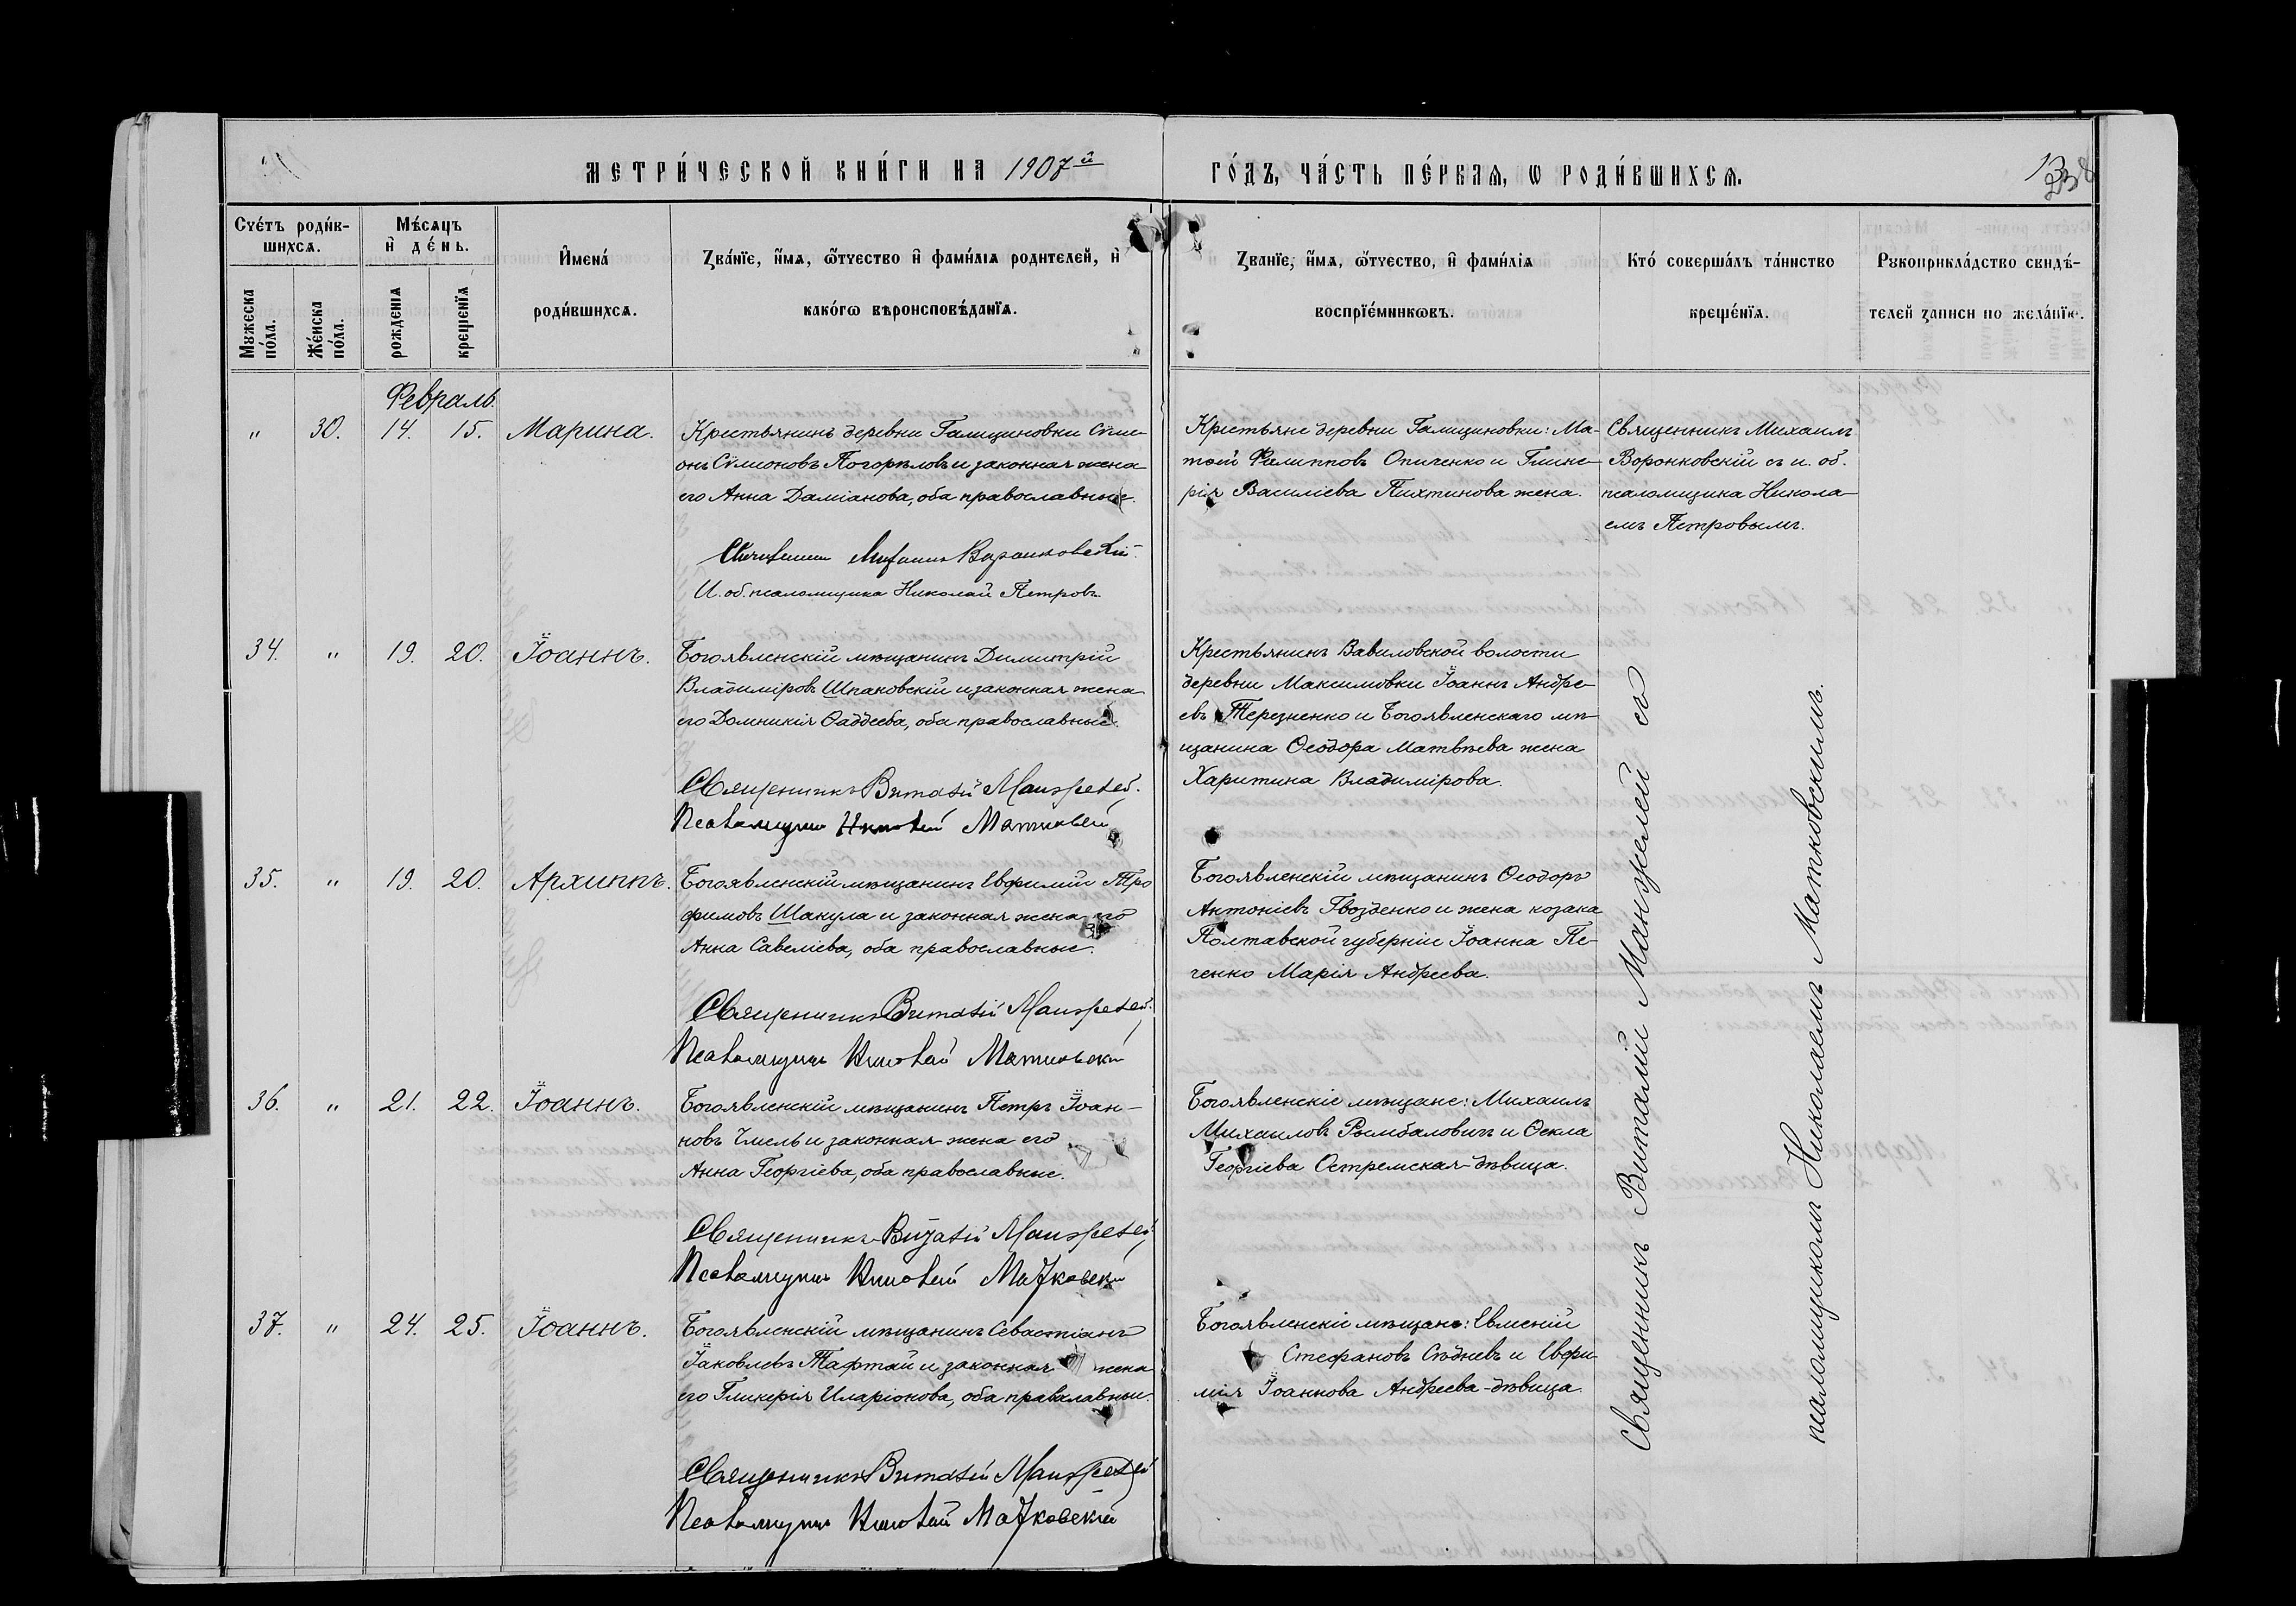 МЕТРИ́ЧЕСКОЙ КНИ́ГИ НА 1907й
ГО́ДЪ, ЧА́СТЬ ПЕ́РВАѦ, Ѡ РОДИ́ВШИХСѦ.
Сче́тъ роди́в-
шихсѧ.
Мѣ́сѧцъ
и҆ де́нь.
И҆мена́
роди́вшихсѧ.
Зва́нїе, и҆́мѧ, ѻ҆́тчество и҆ фами́лїѧ родителей, и҆
како́гѡ вѣроисповѣ́данїѧ.
Зва́нїе, и҆́мѧ, ѻ҆́тчество, и҆ фами́лїѧ
воспрїе́мниковъ.
Кто́ соверша́лъ та́инство
креще́нїѧ.
Рꙋкоприкла́дство свидѣ́-
телей записи по жела́нїю.
Мꙋжеска
по́ла.
Же́нска
по́ла.
рожденїѧ
крещенїѧ
Февраль.
" 30. 14. 15. Марина.
Крестьянинъ деревни Галициновки Сѵме-
онъ Сѵмеоновъ Погорѣловъ и законная жена
его Анна Даміанова, оба православные.
Священникъ Михаилъ Воронковскій
И. об. псаломщика Николай Петровъ.
Крестьяне деревни Галициновки: Ма-
тѳій Филипповъ Опиченко и Глике-
рія Василіева Пихтинова жена.
Священникъ Михаилъ
Воронковскій съ и. об.
псаломщика Никола-
емъ Петровымъ.
34. " 19. 20. Іоаннъ.
Богоявленскій мѣщанинъ Димитрій
Владиміровъ Шпаковскій и законная жена
его Домникія Ѳаддеева, оба православные.
Священникъ Виталій Манжелей.
Псаломщикъ Николай Матковскій
Крестьянинъ Вавиловской волости
деревни Максимовки Іоаннъ Андре-
евъ Терезненко и Богоявленскаго мѣ-
щанина Ѳеодора Матвѣева жена
Харитина Владимірова.
35. " 19. 20. Архиппъ.
Богоявленскій мѣщанинъ Евѳимій Тро
фимовъ Шакула и законная жена его
Анна Савеліева, оба православные.
Священникъ Виталій Манжелей.
Псаломщикъ Николай Матковскій
Богоявленскій мѣщанинъ Ѳеодоръ
Антоніевъ Гвозденко и жена козака
Полтавской губерніи Іоанна Пе-
ченко Марія Андреева.
36. " 21. 22. Іоаннъ.
Богоявленскій мѣщанинъ Петръ Іоан-
новъ Чмель и законная жена его
Анна Георгіева, оба православные.
Священникъ Виталій Манжелей
Псаломщикъ Николай Матковскій
Богоявленскіе мѣщане: Михаилъ
Михаиловъ Рымбаловичъ и Ѳекла
Георгіева Остремская-дѣвица.
37. " 24. 25. Іоаннъ.
Богоявленскій мѣщанинъ Севастіанъ
Іаковлевъ Тафтай и законная жена
его Гликерія Иларіонова, оба православны.
Священникъ Виталій Манжелей
Псаломщикъ Николай Матковскій
Богоявленскіе мѣщане: Евменій
Стефановъ Сѣдневъ и Евфи
мія Іоаннова Андреева-дѣвица.
Священникъ Виталій Манжелей съ
псаломщикомъ Николаемъ Матковскимъ.